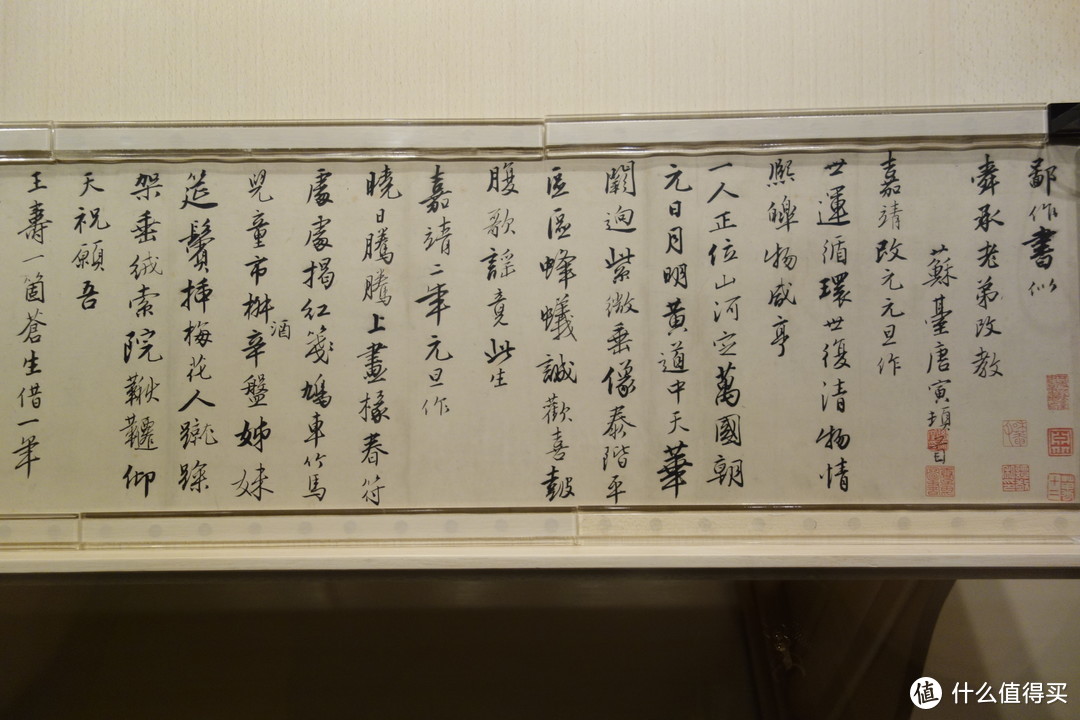 鄙作書似
舜承老弟改教
蘇臺唐寅頓首
嘉靖改元元旦作
世運循環世復清物情
熙皥物咸亨
一人正位山河定萬國朝
元日月明黄道中天華
闕逈紫微垂像泰階平
區區蜂蟻誠歡喜鼓
腹歌謡竟此生
嘉靖二年元旦作
曉日騰騰上畫椽春符
處處揭紅箋鳩車竹馬
兒童市椒辛盤姊妹
酒
筵鬢揷梅花人蹴踘
架垂絨索院鞦韆仰
天祝願吾
王壽一箇蒼生借一年
值 什么值得买